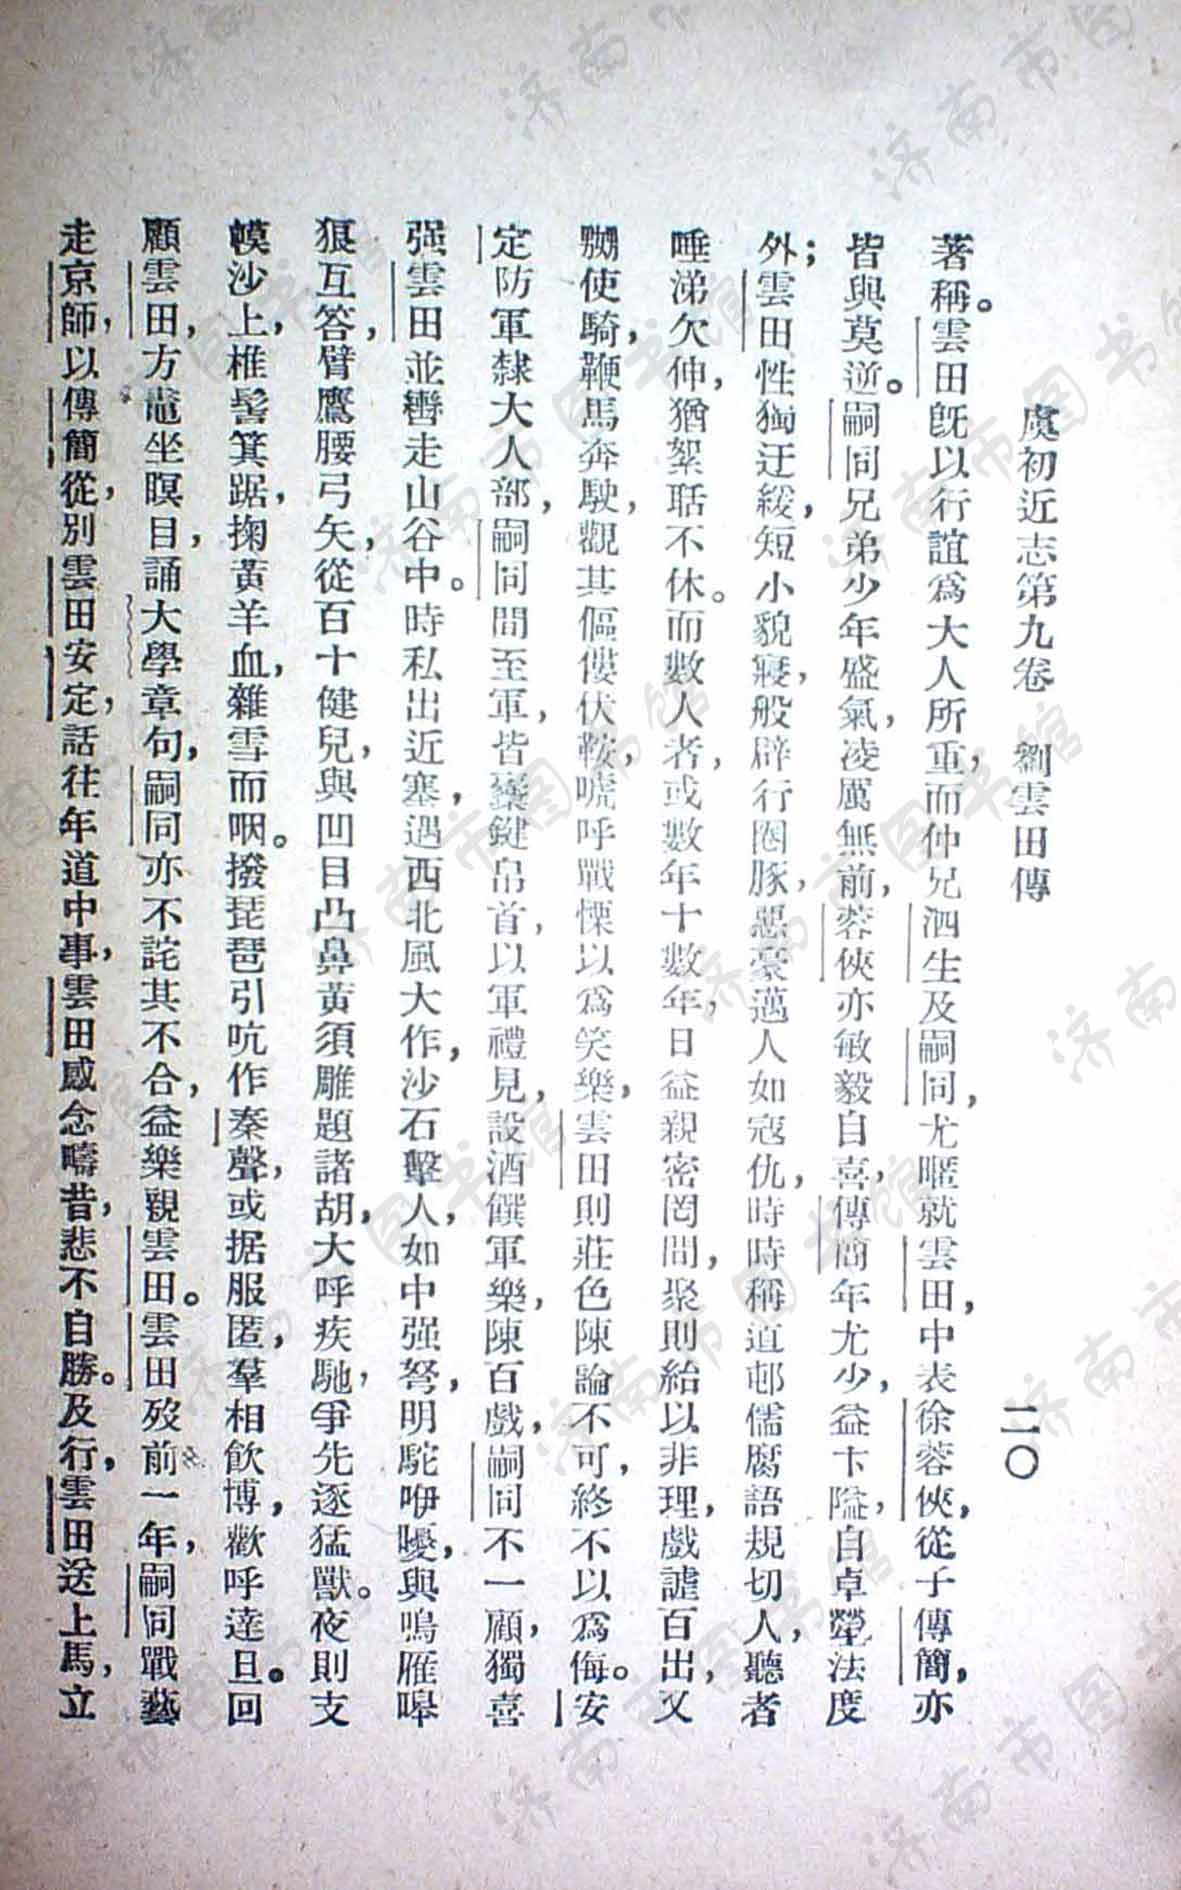 虞初近志第九卷　劉雲田傳　二〇
著稱。雲田旣以行誼爲大人所重，而仲兄泗生及嗣同，尤暱就雲田，中表徐蓉俠，從子傳簡，亦
皆與莫逆。嗣同兄弟少年盛氣，凌厲無前，蓉俠亦敏毅自喜，傳簡年尤少，益卞隘，自卓犖法度
外；雲田性獨迂緩，短小貌寢，般辟行圈豚，惡豪邁人如寇仇，時時稱道邨儒腐語規切人，聽者
唾涕欠伸，猶絮聒不休。而數人者，或數年十數年，日益親密罔間，聚則紿以非理，戲謔百出，又
嬲使騎，鞭馬奔駛，觀其傴僂伏鞍，唬呼戰慄以爲笑樂，雲田則莊色陳論不可，終不以爲侮。安
定防軍隸大人部，嗣同間至軍，皆櫜鞬帛首，以軍禮見，設酒饌軍樂，陳百戲，嗣同不一顧，獨喜
强雲田並轡走山谷中。時私出近塞，遇西北風大作，沙石擊人，如中强弩，明駝咿嚘，與鳴雁嗥
狼互答，臂鷹腰弓矢，從百十健兒，與凹目凸鼻黃須雕題諸胡，大呼疾馳，爭先逐猛獸。夜則支
幙沙上，椎髻箕踞，掬黃羊血，雜雪而咽。撥琵琶引吭作秦聲，或据服匿，羣相飮博，歡呼達旦。回
顧雲田，方竈坐瞑目，誦大學章句，嗣同亦不詫其不合，益樂親雲田。雲田歿前一年，嗣同戰藝
走京師，以傳簡從，別雲田安定，話往年道中事，雲田感念疇昔，悲不自勝。及行，雲田送上馬，立
济南市图书馆